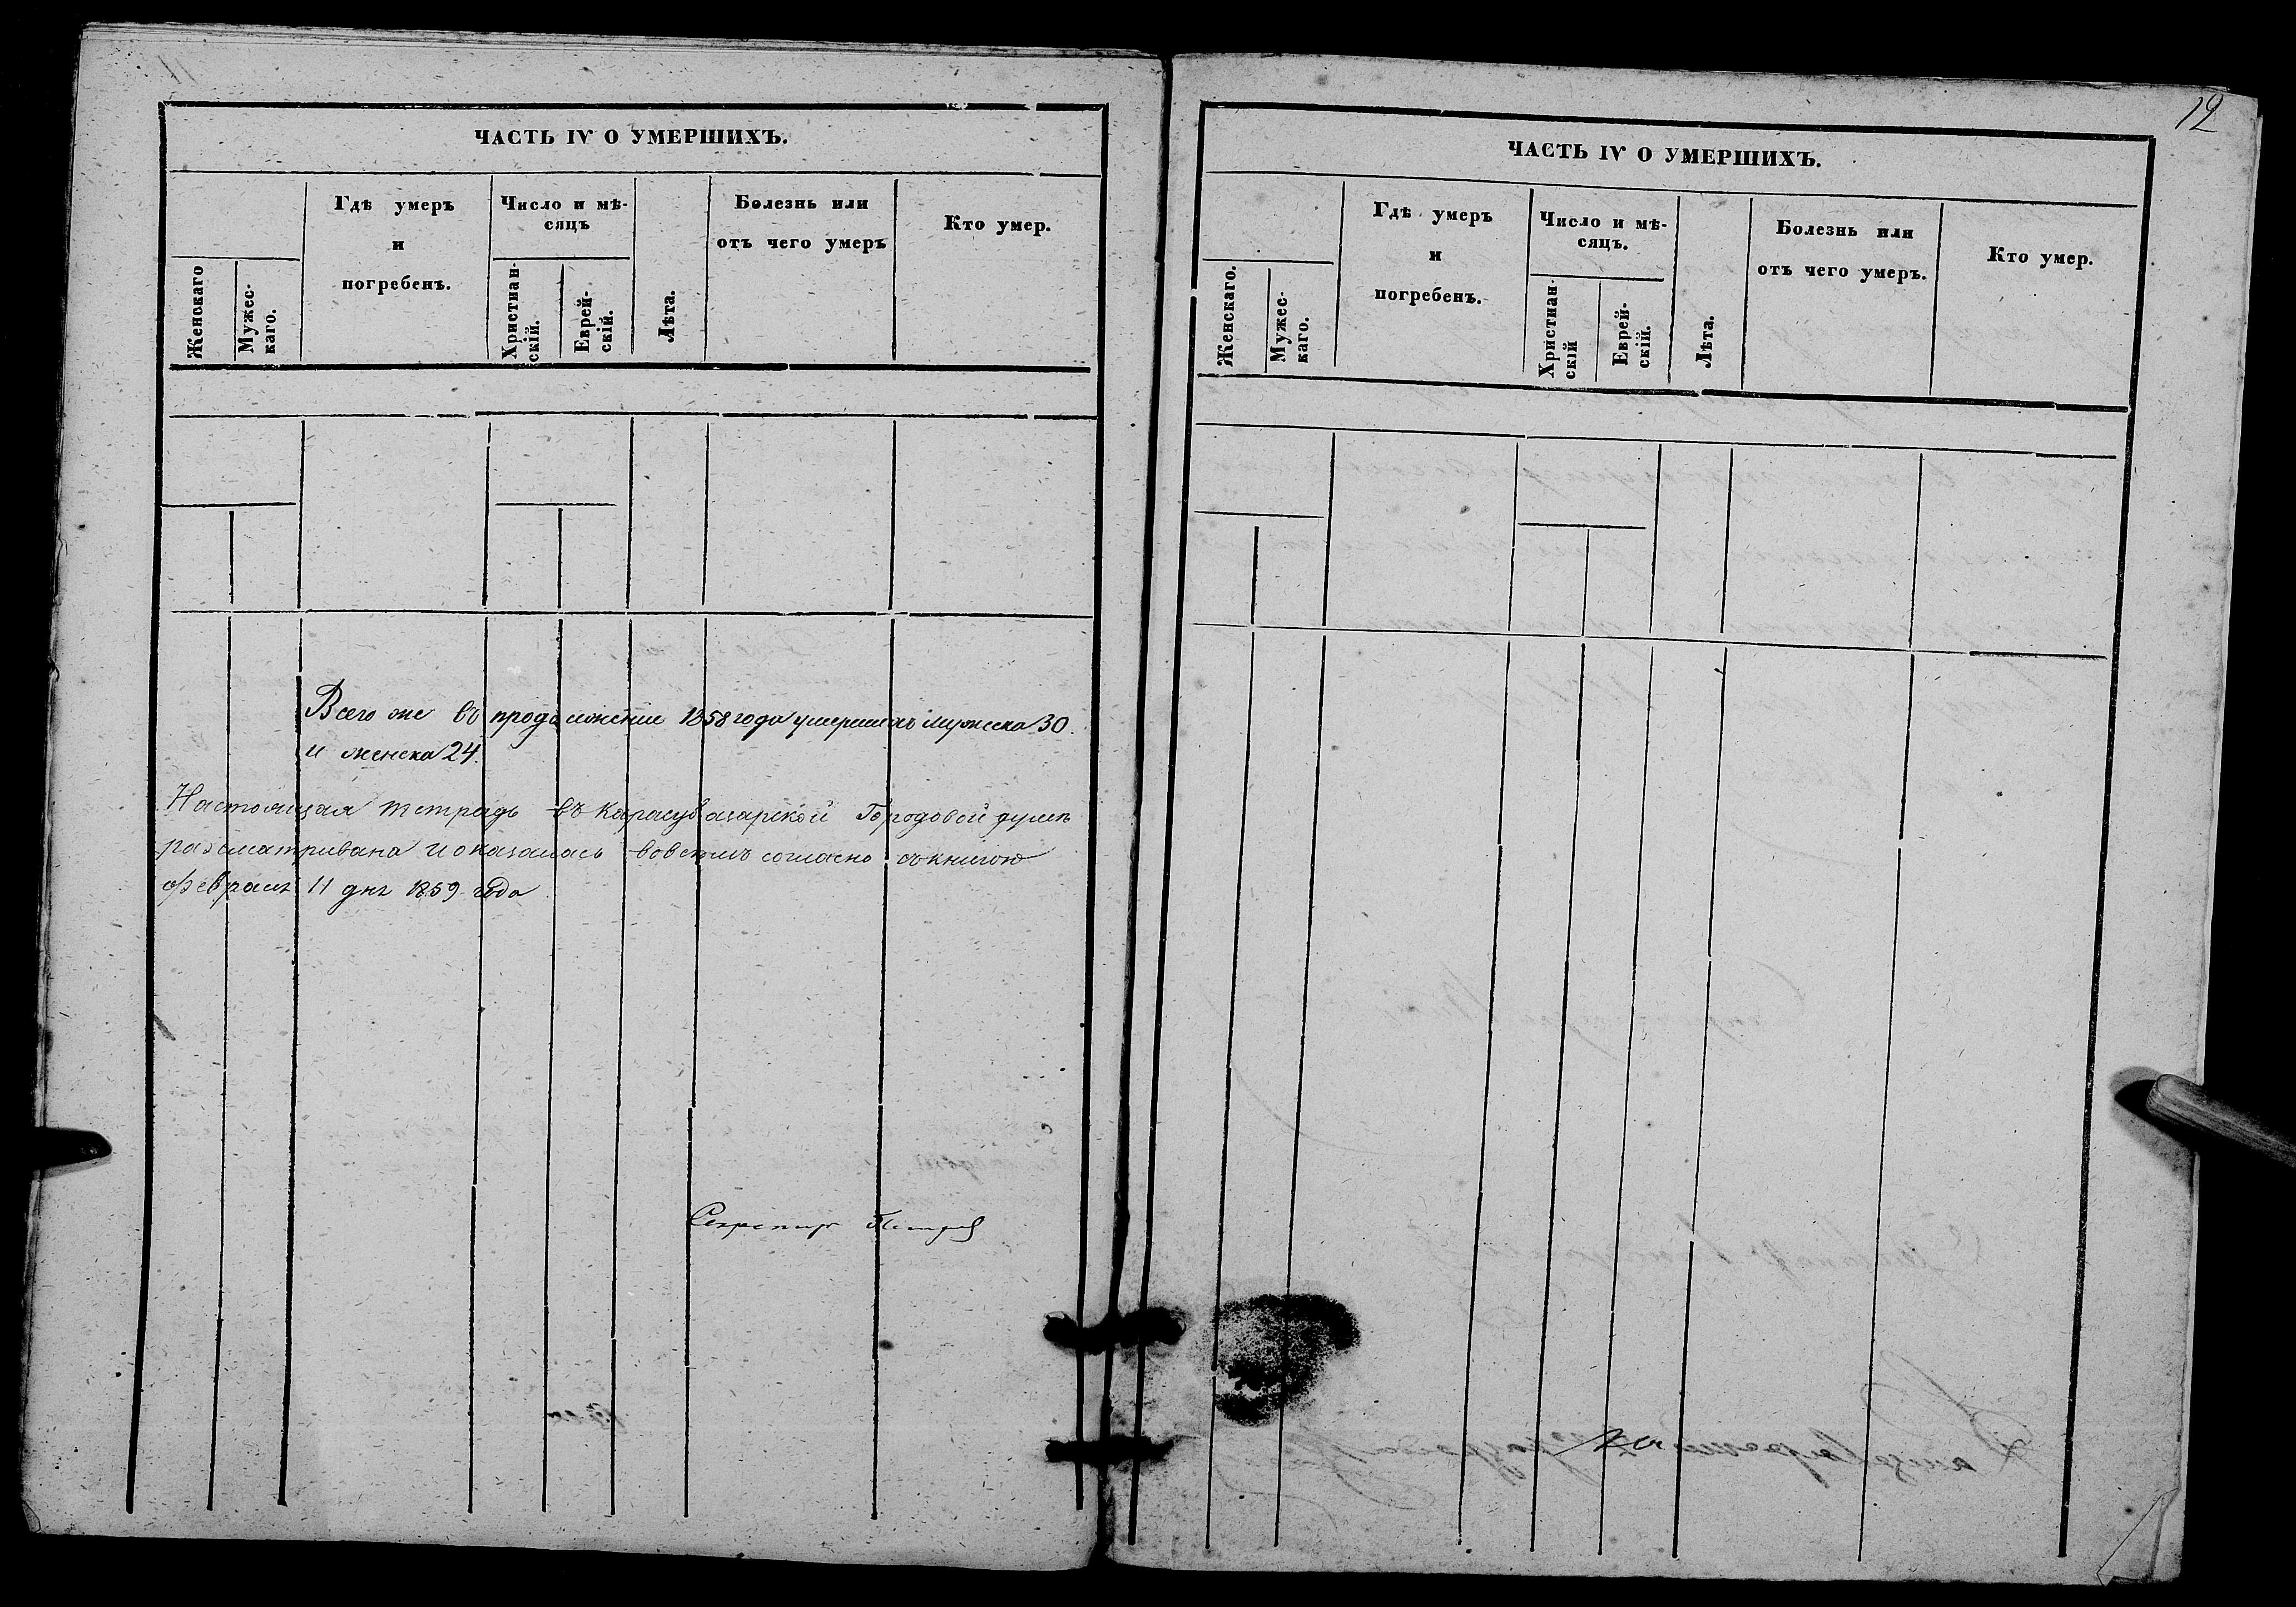 ЧАСТЬ IV О УМЕРШИХЪ.
Женскаго
Мужес-
каго.
Гдѣ умеръ
и
погребенъ.
Число и мѣ-
сяцъ
Христиан-
скій.
Еврей-
скій.
Лѣта.
Болезнь или
отъ чего умеръ
Кто умер.
Всего же въ продолженіе 1858 года умершихъ мужеска 30.
и женска 24.
Настоящая тетрадь въ Карасубазарской Городовой думѣ
разсматривана и оказалась вовсемъ согласно съ книгою
февраля 11 дня 1859 года
Секретарь Петров
12
ЧАСТЬ IV О УМЕРШИХЪ.
Женскаго.
Мужес-
каго.
Гдѣ умеръ
и
погребенъ.
Число и мѣ-
сяцъ.
Христиан-
скій
Еврей-
скій.
Лѣта.
Болезнь или
отъ чего умеръ.
Кто умер.